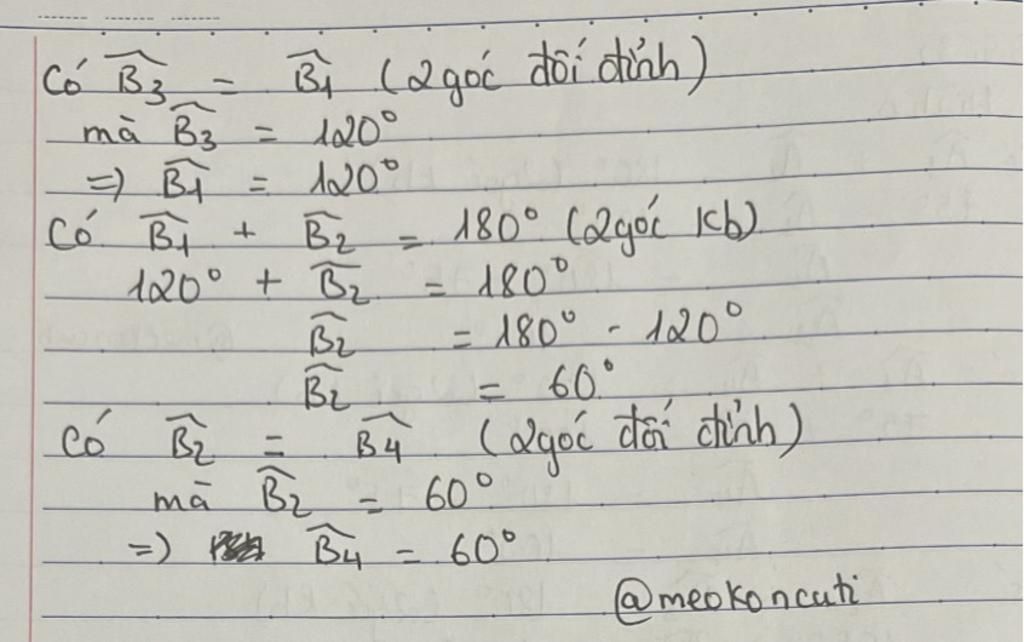 Có B̂3 = B̂1 (2 góc đối đỉnh)
mà B̂3 = 120°
=> B̂1 = 120°
Có B̂1 + B̂2 = 180° (2 góc kb)
120° + B̂2 = 180°
B̂2 = 180° - 120°
B̂2 = 60°
Có B̂2 = B̂4 (2 góc đối đỉnh)
mà B̂2 = 60°
=> B̂4 = 60°
@meokoncuti